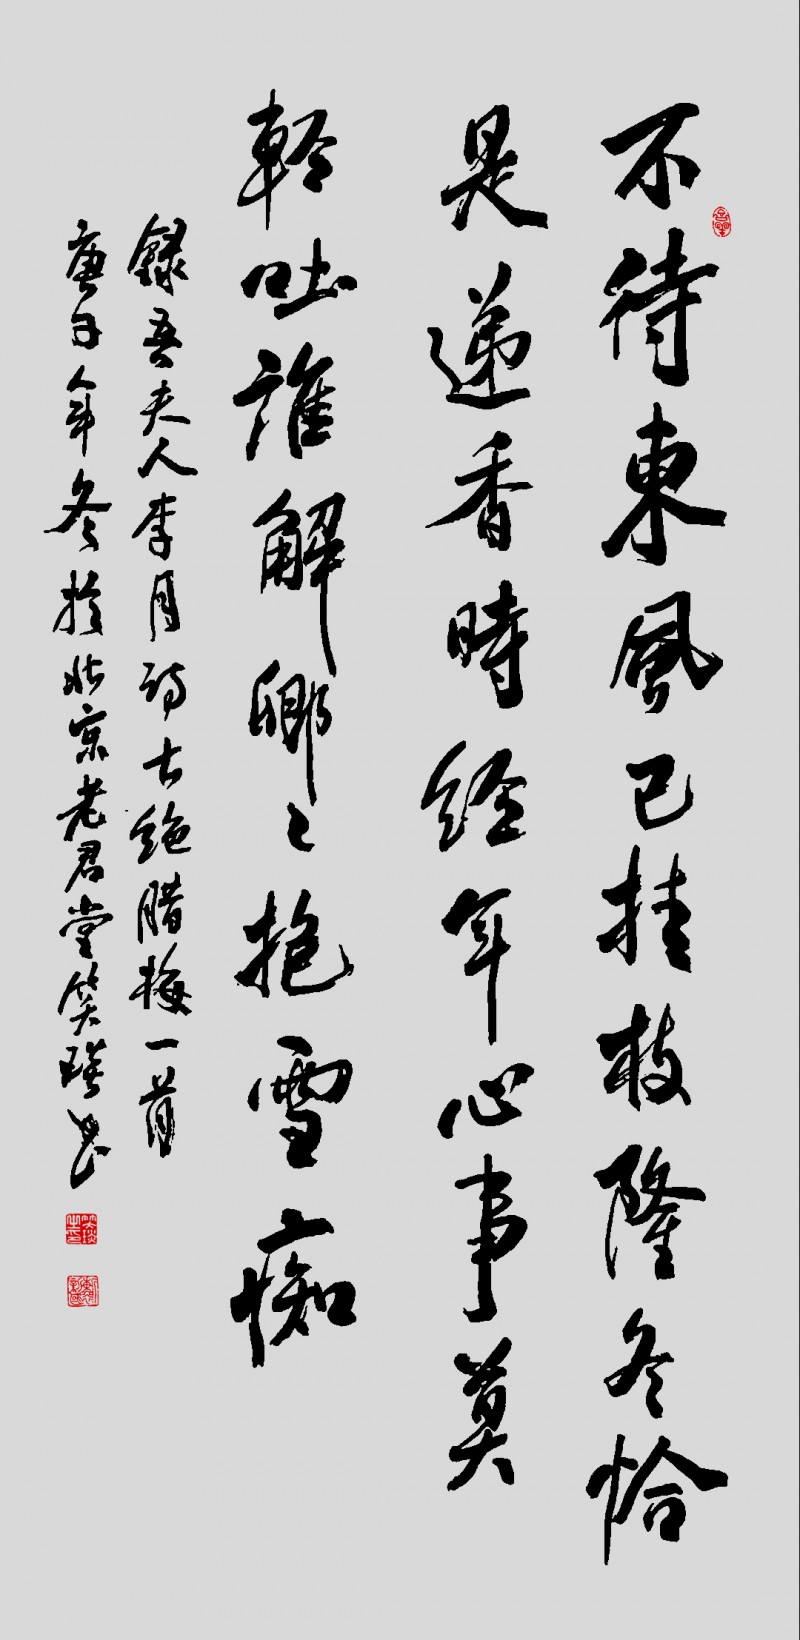 不待東風已挂枝隆冬恰
是递香時經年心事莫
輕吐誰解卿〻抱雪痴
錄吾夫人李月诗七絶腊梅一首
庚子年冬於北京老君堂笑琰书